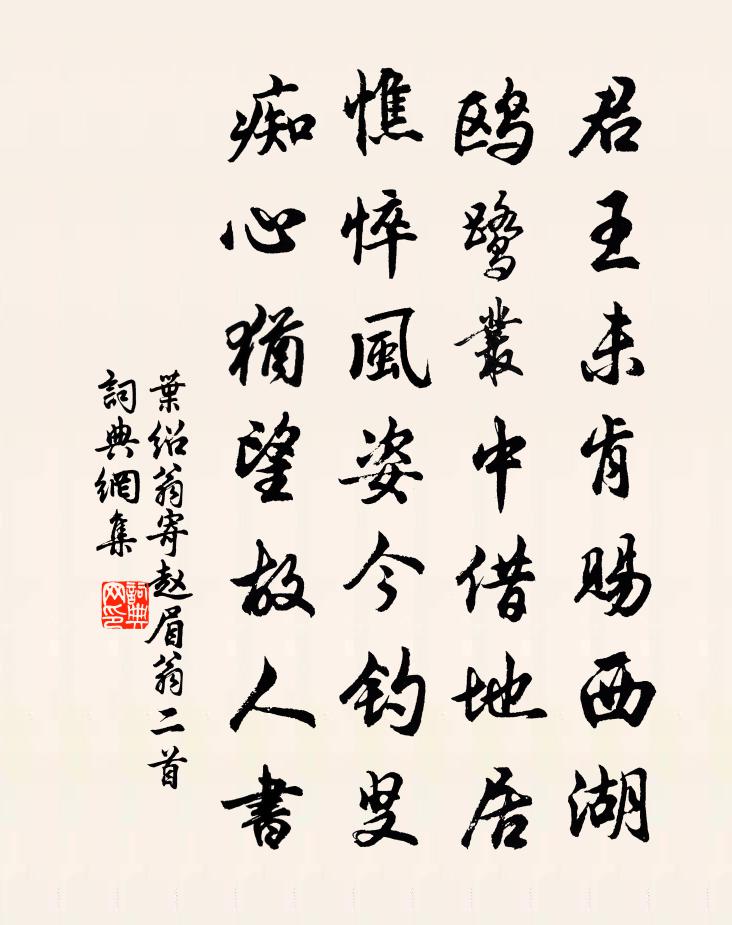 君王未肯賜西湖
鸥鹭叢中借地居
憔悴風姿今钓叟
痴心猶望故人書
葉绍翁寄赵眉翁二首
詞典網集
詞典網印